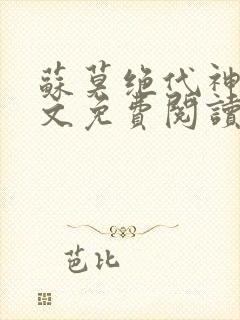 蘇莫绝代神
文免費閱讀
芭比